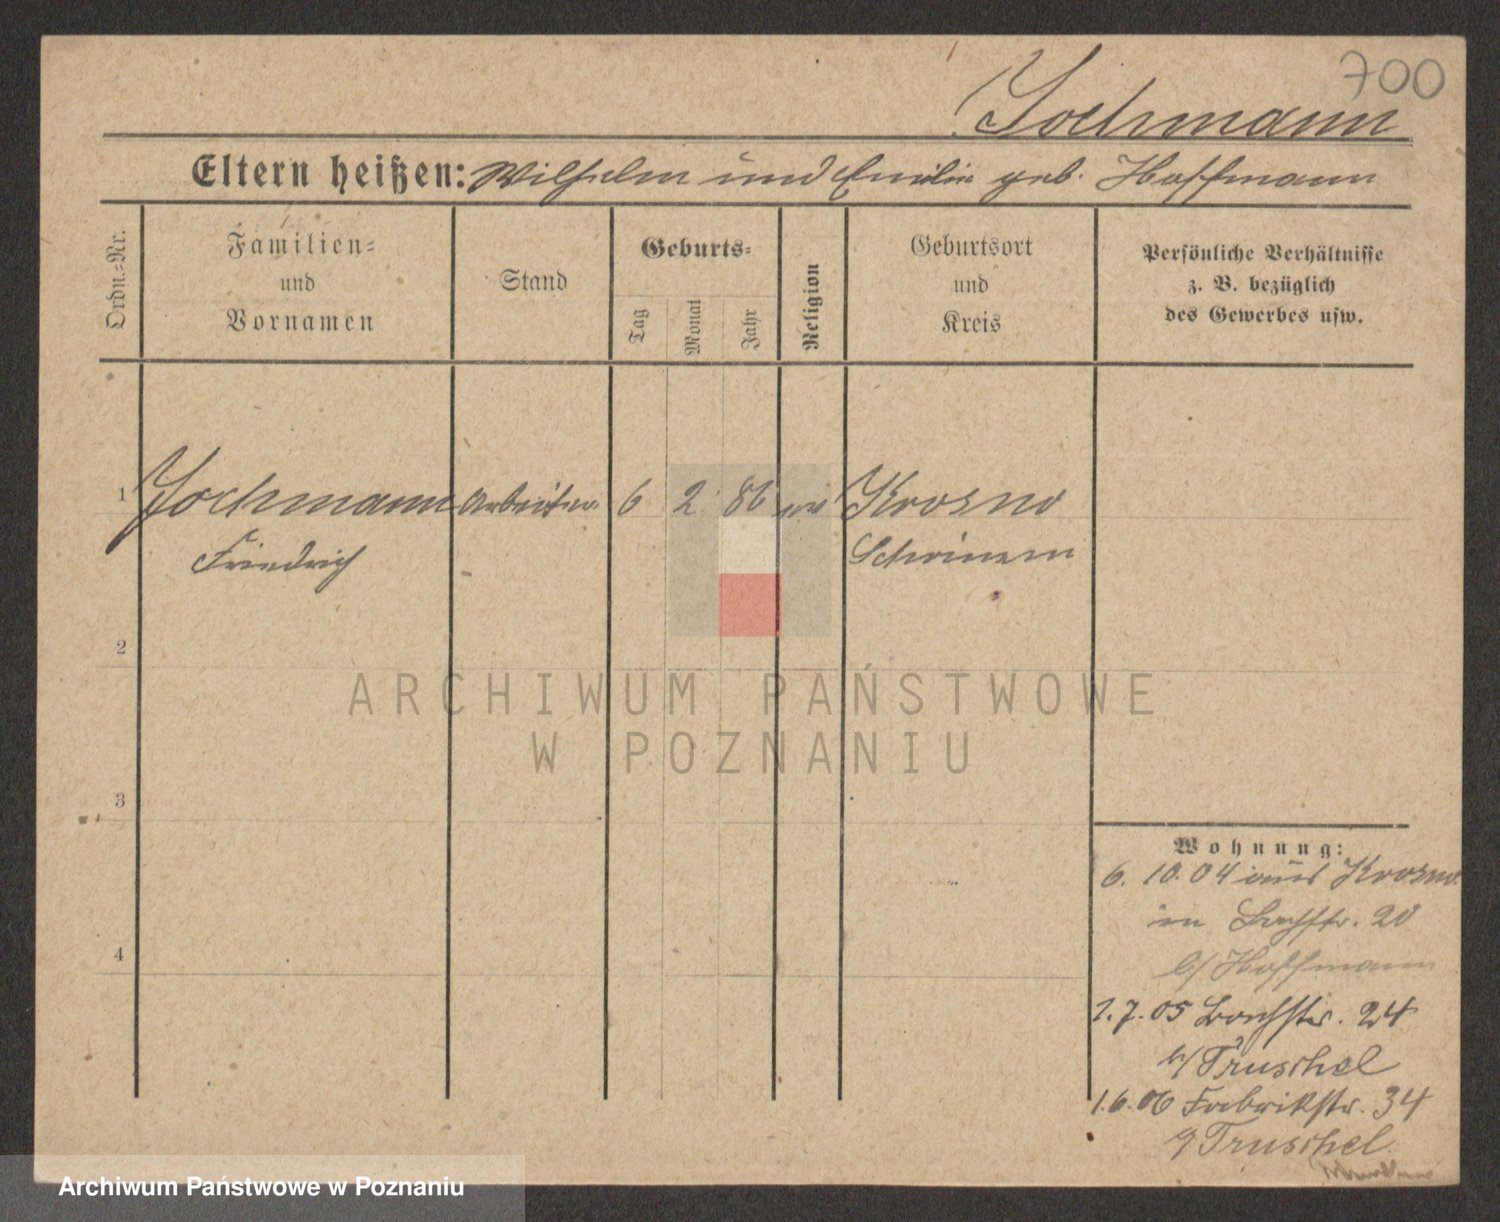 700
Jochmann
Eltern heißen: Wilhelm und Emilie geb. Hoffmann
Ordn.-Nr.
Familien-
und
Vornamen
Stand
Geburts-
Tag
Monat
Jahr
Religion
Geburtsort
und
Kreis
Persönliche Verhältnisse
z. B. bezüglich
des Gewerbes usw.
1 Jochmann Arbeiter 6 2 86 ev Krosno
Friedrich Schrimm
2
3
4
ARCHIWUM PAŃSTWOWE
W POZNANIU
Wohnung:
6. 10. 04 aus Krosno
in Bachstr. 20
b/ Hoffmann
1. 7. 05 Bachstr. 24
b/ Truschel
1. 6. 06 Fabrikstr. 34
b/ Truschel
Archiwum Państwowe w Poznaniu